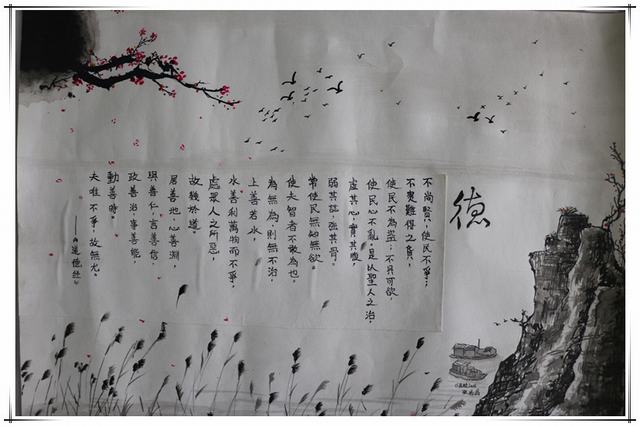 德
不尚賢，使民不爭；
不貴難得之貨，
使民不為盜；不見可欲，
使民心不亂。是以聖人之治，
虛其心，實其腹，
弱其誌，強其骨。
常使民無知無欲。
使夫智者不敢為也。
為無為，則無不治。
上善若水，
水善利萬物而不爭，
處眾人之所惡，
故幾於道。
居善地，心善淵，
與善仁，言善信，
政善治，事善能，
動善時。
夫唯不爭，故無尤。
——《道德經》